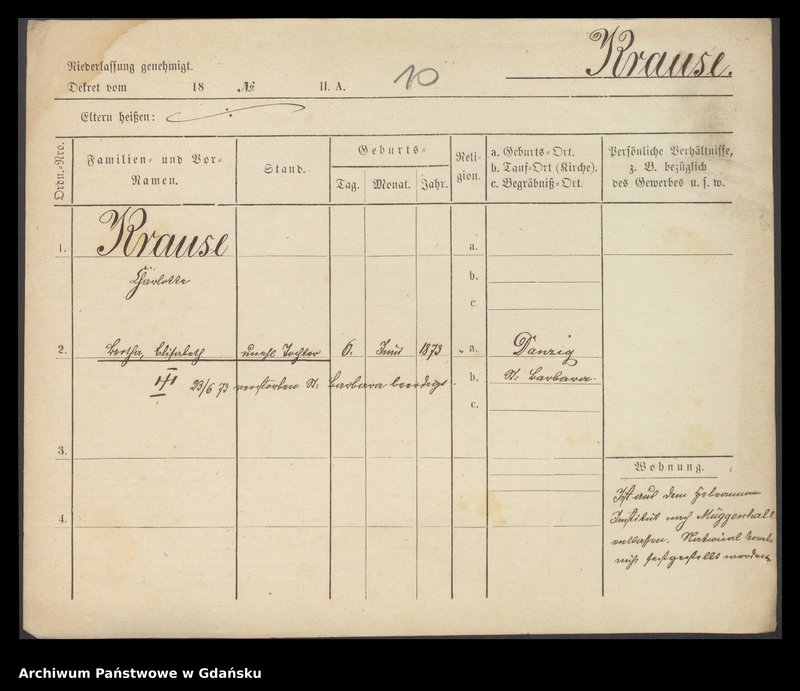 Krause.
Niederlassung genehmigt.
Dekret vom 18 № II. A. 10
Eltern heißen:
Ordn.-Nro.
Familien- und Vor-Namen.
Stand.
Geburts-
Tag. Monat. Jahr.
Religion.
a. Geburts-Ort.
b. Tauf-Ort (Kirche).
c. Begräbniß-Ort.
Persönliche Verhältnisse,
z. B. bezüglich
des Gewerbes u. s. w.
1. Krause a.
Charlotte b.
c.
2. Bertha, Elisabeth unehl. Tochter 6. Juni 1873 " a. Danzig
23/6 73 verstorben St: Barbara beerdigt. b. St: Barbara.
c.
3.
Wohnung.
Ist aus dem Hebammen
Institut nach Müggenhall
4.
entlassen. National konnte
nicht festgestellt werden
Archiwum Państwowe w Gdańsku